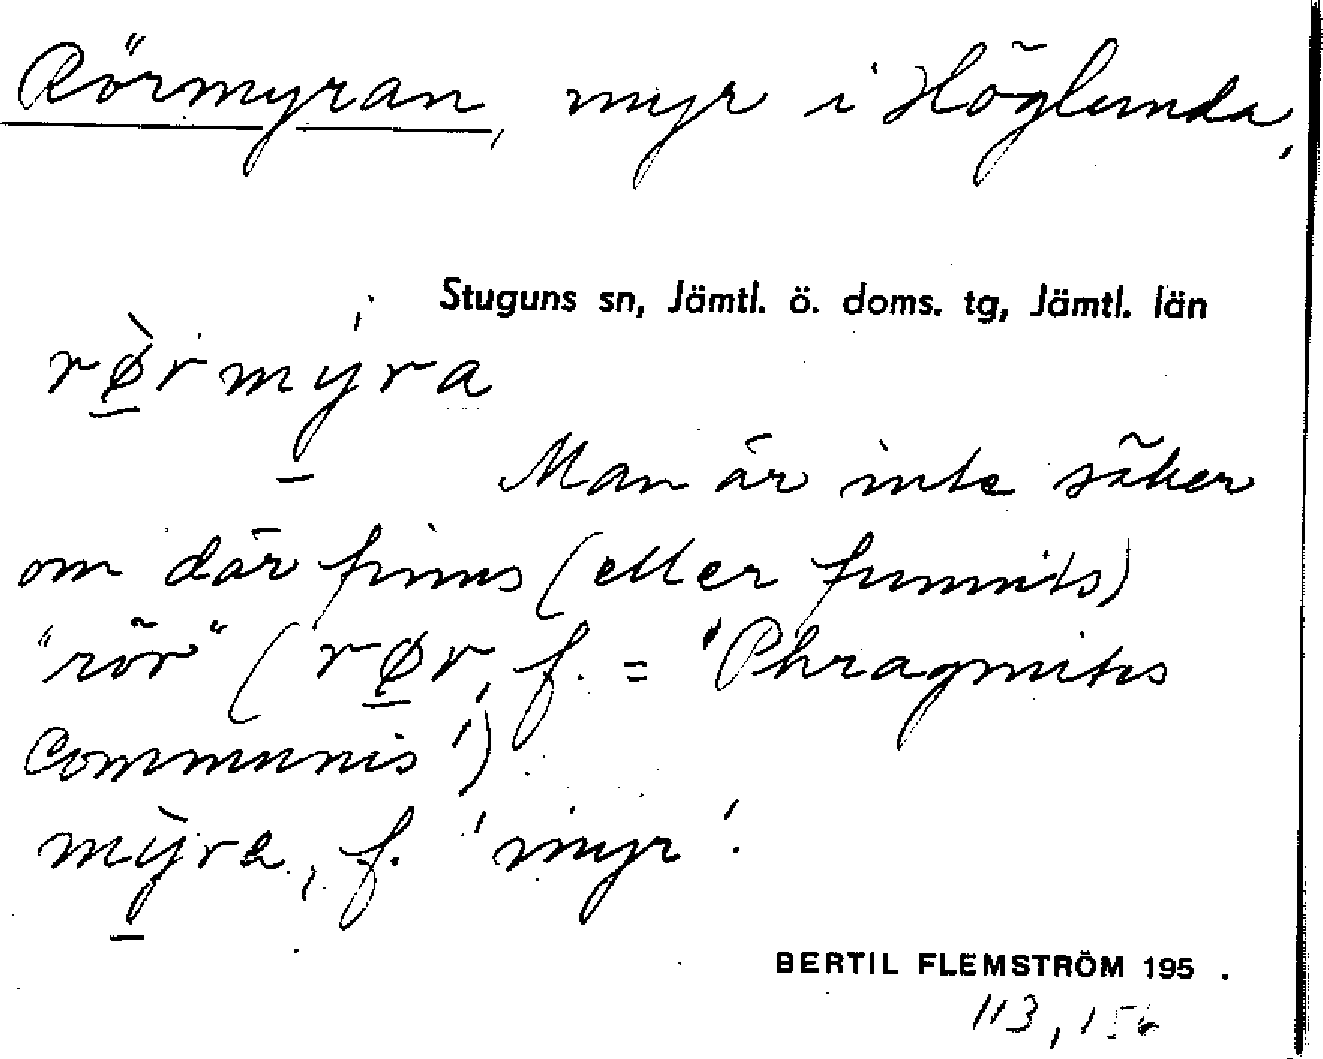 Rörmyran, myr i Höglunda,
Stuguns sn, Jämtl. ö. doms. tg, Jämtl. län
rø̱̀rmý̱ra
Man är inte säker
om där finns (eller funnits)
"rör" (rø̱r, f. = 'Phragmites
Communis')
mỳ̱ra, f. 'myr'.
BERTIL FLEMSTRÖM 195 .
113, 156